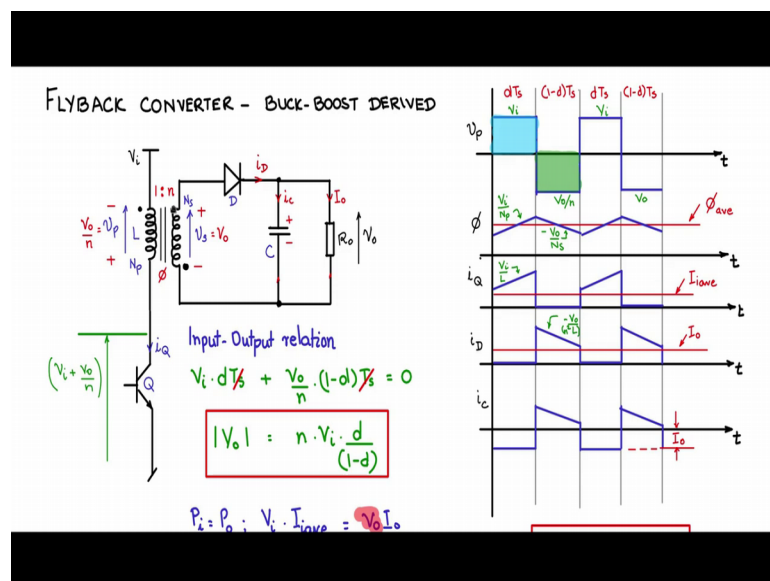 FLYBACK CONVERTER - BUCK-BOOST DERIVED
Vi
1:n
Ns
D
iD
ic
Io
Vo/n = υp
L
Np
ϕ
υs = Vo
C
Ro
Vo
iQ
Q
(Vi + Vo/n)
Input-Output relation
Vi · dTs + Vo/n · (1-d)Ts = 0
|Vo| = n · Vi · d/(1-d)
Pi = Po ; Vi · Iiave = VoIo
dTs (1-d)Ts dTs (1-d)Ts
Vi Vi
υp
t
Vo/n Vo
ϕ
Vi/Np
-Vo/Ns
ϕave
t
iQ
Vi/L
Iiave
t
iD
-Vo/(n²L)
Io
t
ic
Io
t